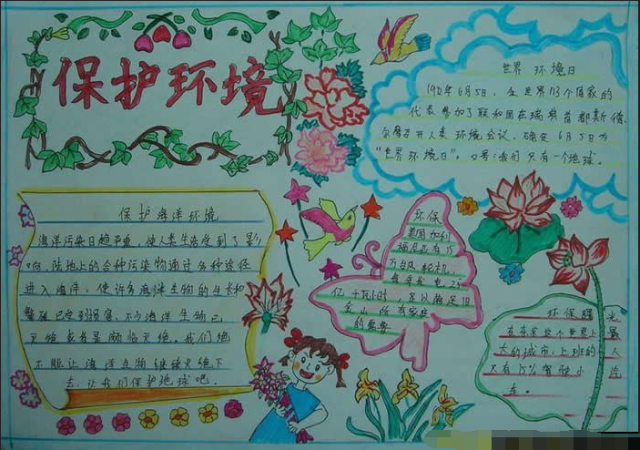 保护环境
世界 环境日
1972年6月5日,在世界113个国家的
代表参加了联和国在瑞典首都斯德
尔摩召开人类环境会议,确定6月5日为
"世界环境日"。口号:我们只有一个地球。
保护海洋环境
海洋污染日趋严重,使人类生态受到了影
响,陆地上的各种污染物通过各种途径
进入海洋,使许多海洋生物的生长和
繁殖已受到损害,不少海洋生物已
灭绝或者是濒临灭绝。我们绝
不能让海洋生物继续灭绝下
去,让我们保护地球吧。
环保
美国加州
万台
亿 小时,足以满足旧
金山所有家庭
的需要
环保
世界上
的城市,上班的人
只有15%驾驶小